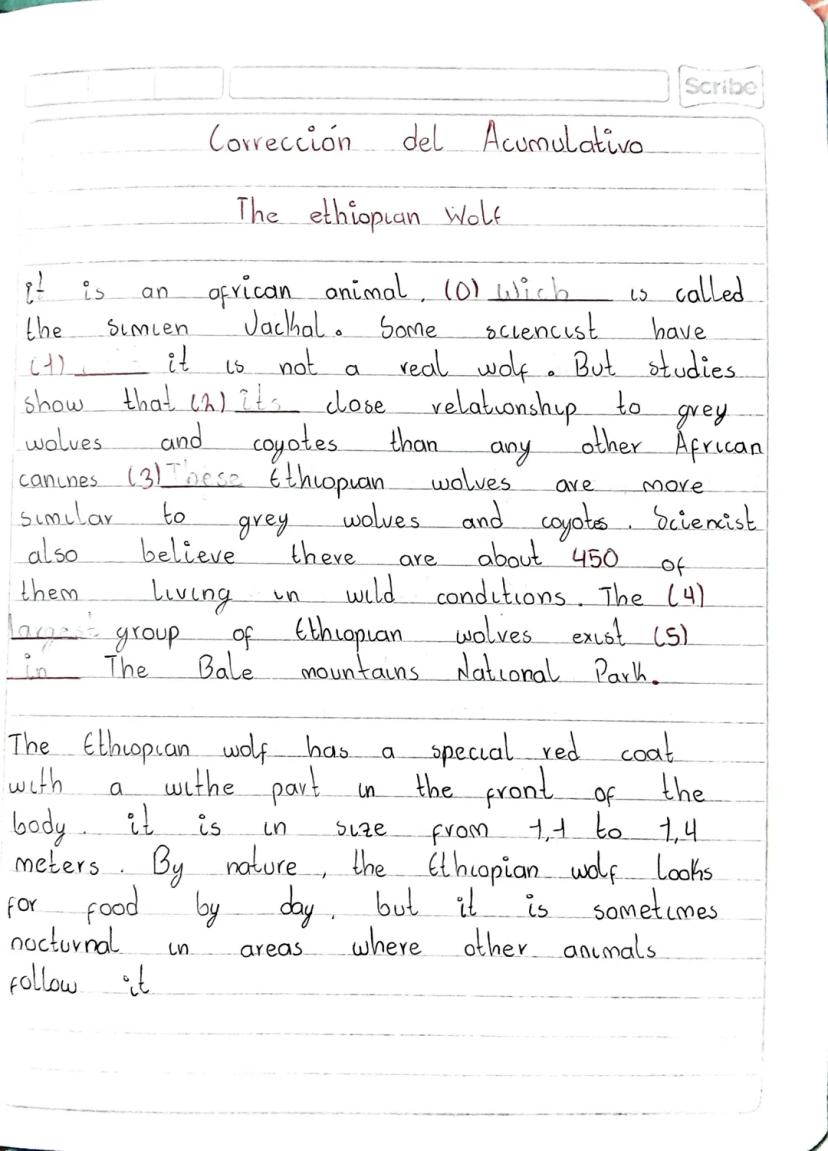 Scribe
Corrección del Acumulativo
The ethiopian Wolf
it is an african animal, (0) Wich is called
the simien Jackal. Some sciencist have
(1) ____ it is not a real wolf. But studies
show that (2) its close relationship to grey
wolves and coyotes than any other African
canines (3) These Ethiopian wolves are more
similar to grey wolves and coyotes. Sciencist
also believe there are about 450 of
them living in wild conditions. The (4)
largest group of Ethiopian wolves exist (5)
in The Bale mountains National Park.
The Ethiopian wolf has a special red coat
with a withe part in the front of the
body. it is in size from 1,1 to 1,4
meters. By nature, the Ethiopian wolf looks
for food by day, but it is sometimes
nocturnal in areas where other animals
follow it